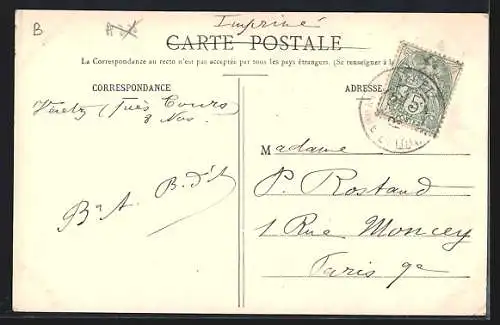 B
Imprimé
CARTE POSTALE
La Correspondance au recto n'est pas acceptée par tous les pays étrangers. (Se renseigner à la
CORRESPONDANCE
ADRESSE
Veretz (près Tours)
8 Nov.
Madame
P. Rostand
1 Rue Moncey
Paris 9e